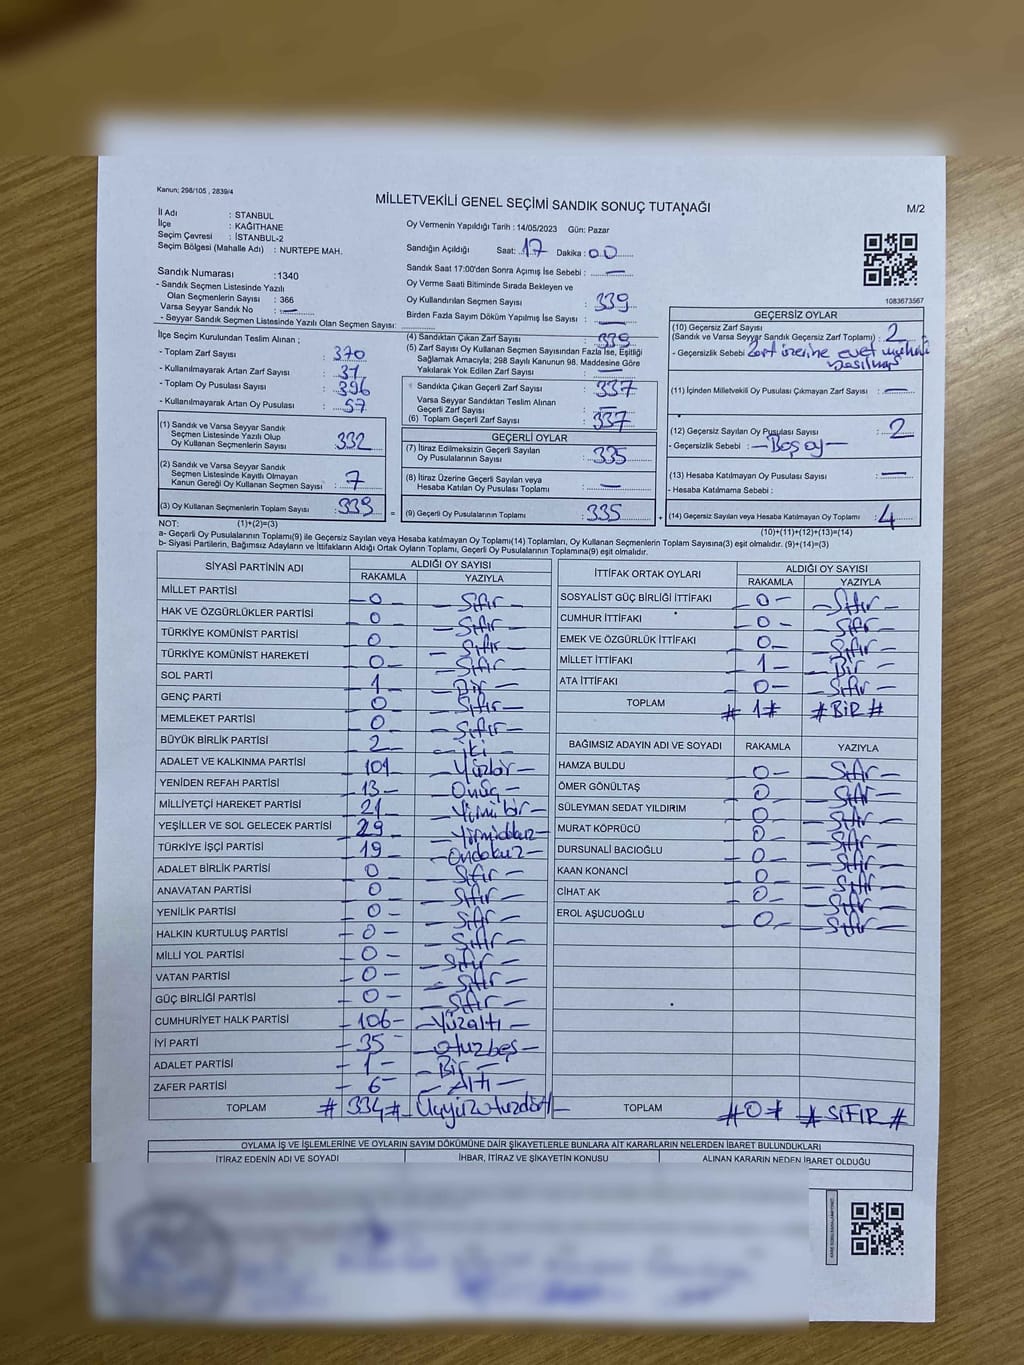 Kanun; 298/105 , 2839/4
MİLLETVEKİLİ GENEL SEÇİMİ SANDIK SONUÇ TUTANAĞI
M/2
İl Adı : STANBUL
İlçe : KAĞITHANE
Seçim Çevresi : İSTANBUL-2
Seçim Bölgesi (Mahalle Adı) : NURTEPE MAH.
Oy Vermenin Yapıldığı Tarih : 14/05/2023 Gün: Pazar
Sandığın Açıldığı Saat: 17 Dakika: 00
Sandık Saat 17:00'den Sonra Açımış İse Sebebi : —
Oy Verme Saati Bitiminde Sırada Bekleyen ve
Oy Kullandırılan Seçmen Sayısı : 339
Birden Fazla Sayım Döküm Yapılmış İse Sayısı : —
1083673567
Sandık Numarası :1340
- Sandık Seçmen Listesinde Yazılı
Olan Seçmenlerin Sayısı : 366
Varsa Seyyar Sandık No : —
- Seyyar Sandık Seçmen Listesinde Yazılı Olan Seçmen Sayısı:
İlçe Seçim Kurulundan Teslim Alınan ;
- Toplam Zarf Sayısı : 370
- Kullanılmayarak Artan Zarf Sayısı : 31
- Toplam Oy Pusulası Sayısı : 396
- Kullanılmayarak Artan Oy Pusulası : 57
(1) Sandık ve Varsa Seyyar Sandık
Seçmen Listesinde Yazılı Olup
Oy Kullanan Seçmenlerin Sayısı : 332
(2) Sandık ve Varsa Seyyar Sandık
Seçmen Listesinde Kayıtlı Olmayan
Kanun Gereği Oy Kullanan Seçmen Sayısı : 7
(3) Oy Kullanan Seçmenlerin Toplam Sayısı : 339
=
(4) Sandıktan Çıkan Zarf Sayısı : 339
(5) Zarf Sayısı Oy Kullanan Seçmen Sayısından Fazla İse, Eşitliği
Sağlamak Amacıyla; 298 Sayılı Kanunun 98. Maddesine Göre
Yakılarak Yok Edilen Zarf Sayısı : —
Sandıkta Çıkan Geçerli Zarf Sayısı : 337
Varsa Seyyar Sandıktan Teslim Alınan
Geçerli Zarf Sayısı : —
(6) Toplam Geçerli Zarf Sayısı : 337
GEÇERLİ OYLAR
(7) İtiraz Edilmeksizin Geçerli Sayılan
Oy Pusulalarının Sayısı : 335
(8) İtiraz Üzerine Geçerli Sayılan veya
Hesaba Katılan Oy Pusulası Toplamı : —
(9) Geçerli Oy Pusulalarının Toplamı : 335
+
GEÇERSİZ OYLAR
(10) Geçersiz Zarf Sayısı
(Sandık ve Varsa Seyyar Sandık Geçersiz Zarf Toplamı) : 2
- Geçersizlik Sebebi : Zarf üzerine evet
(11) İçinden Milletvekili Oy Pusulası Çıkmayan Zarf Sayısı : —
(12) Geçersiz Sayılan Oy Pusulası Sayısı : 2
- Geçersizlik Sebebi : — Boş oy —
(13) Hesaba Katılmayan Oy Pusulası Sayısı : —
- Hesaba Katılmama Sebebi :
(14) Geçersiz Sayılan veya Hesaba Katılmayan Oy Toplamı : 4
NOT: (1)+(2)=(3)
(10)+(11)+(12)+(13)=(14)
a- Geçerli Oy Pusulalarının Toplamı(9) ile Geçersiz Sayılan veya Hesaba katılmayan Oy Toplamı(14) Toplamları, Oy Kullanan Seçmenlerin Toplam Sayısına(3) eşit olmalıdır. (9)+(14)=(3)
b- Siyasi Partilerin, Bağımsız Adayların ve İttifakların Aldığı Ortak Oyların Toplamı, Geçerli Oy Pusulalarının Toplamına(9) eşit olmalıdır.
SİYASİ PARTİNİN ADI ALDIĞI OY SAYISI
RAKAMLA YAZIYLA
MİLLET PARTİSİ — 0 — — Sıfır —
HAK VE ÖZGÜRLÜKLER PARTİSİ — 0 — Sıfır —
TÜRKİYE KOMÜNİST PARTİSİ — 0 — Sıfır —
TÜRKİYE KOMÜNİST HAREKETİ — 0 — — Sıfır —
SOL PARTİ — 1 — — Bir —
GENÇ PARTİ — 0 — — Sıfır —
MEMLEKET PARTİSİ — 0 — — Sıfır —
BÜYÜK BİRLİK PARTİSİ — 2 — — İki —
ADALET VE KALKINMA PARTİSİ — 101 — — Yüzbir —
YENİDEN REFAH PARTİSİ — 13 — — Onüç —
MİLLİYETÇİ HAREKET PARTİSİ — 21 — — Yirmibir —
YEŞİLLER VE SOL GELECEK PARTİSİ — 29 — Yirmidokuz —
TÜRKİYE İŞÇİ PARTİSİ — 19 — — Ondokuz —
ADALET BİRLİK PARTİSİ — 0 — — Sıfır —
ANAVATAN PARTİSİ — 0 — Sıfır —
YENİLİK PARTİSİ — 0 — — Sıfır —
HALKIN KURTULUŞ PARTİSİ — 0 — — Sıfır —
MİLLİ YOL PARTİSİ — 0 — — Sıfır —
VATAN PARTİSİ — 0 — — Sıfır —
GÜÇ BİRLİĞİ PARTİSİ — 0 — — Sıfır —
CUMHURİYET HALK PARTİSİ — 106 — — Yüzaltı —
İYİ PARTİ — 35 — — Otuzbeş —
ADALET PARTİSİ — 1 — — Bir —
ZAFER PARTİSİ — 6 — — Altı —
TOPLAM # 334 # — Üçyüzotuzdört —
İTTİFAK ORTAK OYLARI ALDIĞI OY SAYISI
RAKAMLA YAZIYLA
SOSYALİST GÜÇ BİRLİĞİ İTTİFAKI — 0 — — Sıfır —
CUMHUR İTTİFAKI — 0 — — Sıfır —
EMEK VE ÖZGÜRLÜK İTTİFAKI — 0 — — Sıfır —
MİLLET İTTİFAKI — 1 — — Bir —
ATA İTTİFAKI — 0 — — Sıfır —
TOPLAM # 1 # # BİR #
BAĞIMSIZ ADAYIN ADI VE SOYADI RAKAMLA YAZIYLA
HAMZA BULDU — 0 — — Sıfır —
ÖMER GÖNÜLTAŞ — 0 — Sıfır —
SÜLEYMAN SEDAT YILDIRIM — 0 — — Sıfır —
MURAT KÖPRÜCÜ — 0 — — Sıfır —
DURSUNALİ BACIOĞLU — 0 — — Sıfır —
KAAN KONANCİ — 0 — — Sıfır —
CİHAT AK — 0 — — Sıfır —
EROL AŞUCUOĞLU — 0 — — Sıfır —
TOPLAM # 0 # # SIFIR #
OYLAMA İŞ VE İŞLEMLERİNE VE OYLARIN SAYIM DÖKÜMÜNE DAİR ŞİKAYETLERLE BUNLARA AİT KARARLARIN NELERDEN İBARET BULUNDUKLARI
İTİRAZ EDENİN ADI VE SOYADI İHBAR, İTİRAZ VE ŞİKAYETİN KONUSU ALINAN KARARIN NEDEN İBARET OLDUĞU